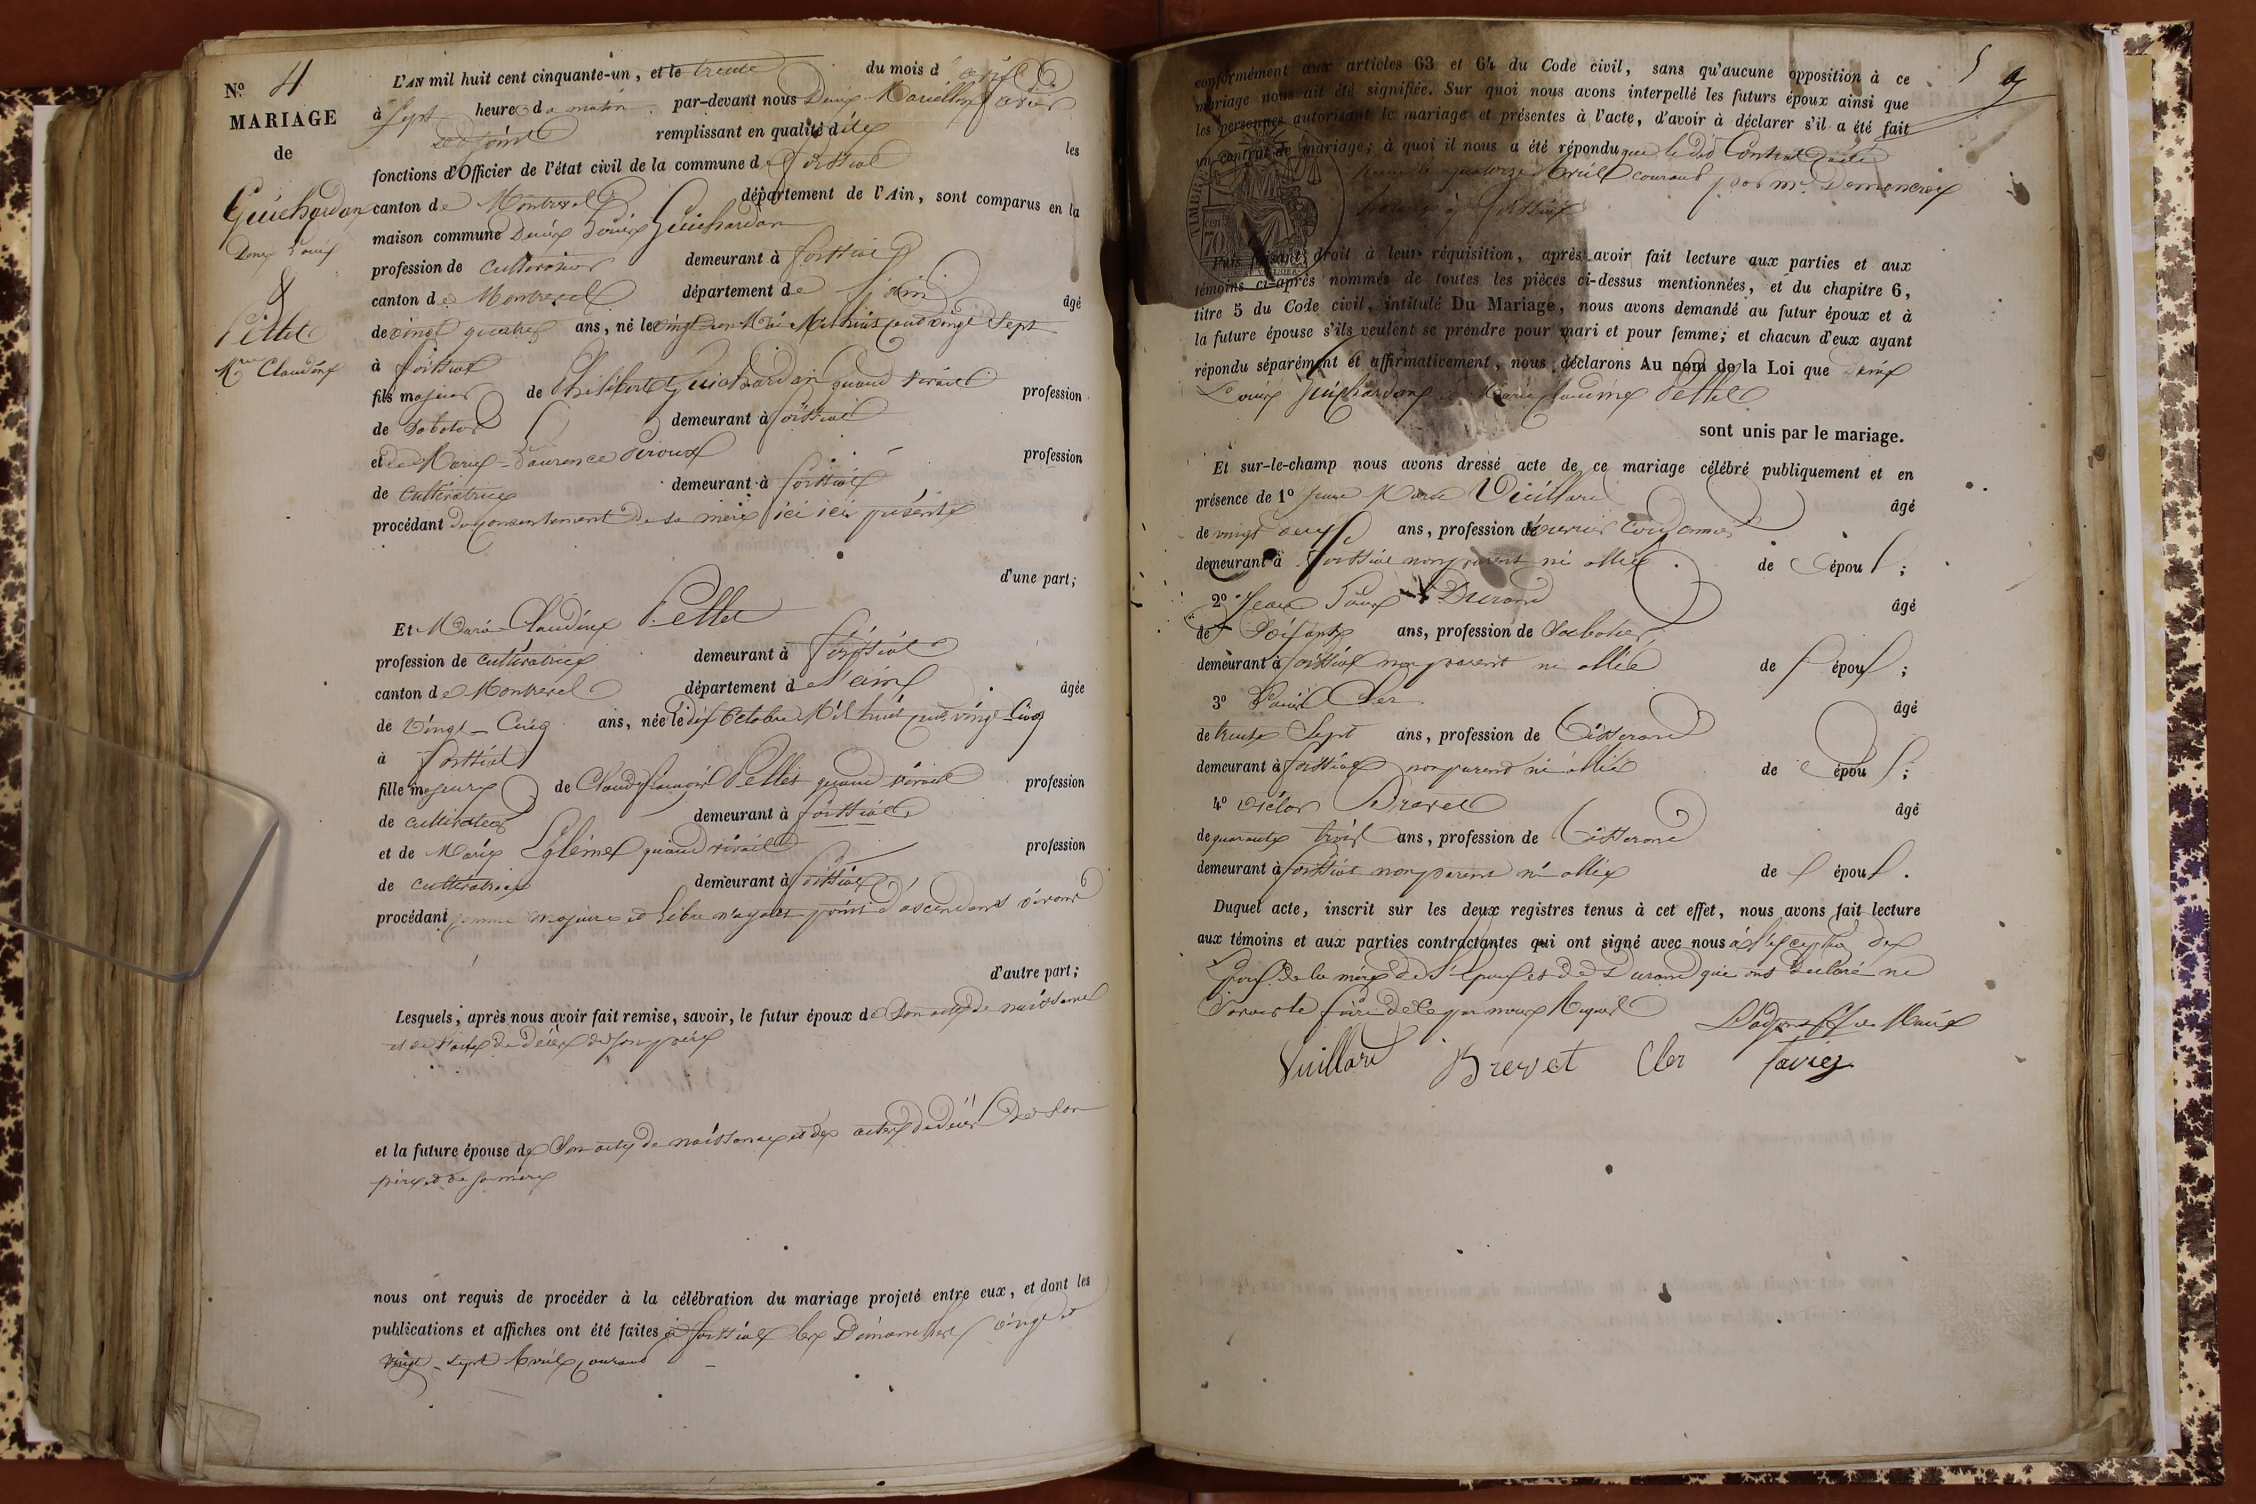 N.º 4
MARIAGE
de
Guichardan
Denis Louis
&
Pellet
M.rie Claudine
L'AN mil huit cent cinquante-un, et le trente du mois d'avril
à sept heures du matin par-devant nous Denis Marcellin Favier
adjoint remplissant en qualité de les
fonctions d'Officier de l'état civil de la commune de Foissiat
canton de Montrevel département de l'Ain, sont comparus en la
maison commune Denis Louis Guichardan
profession de cultivateur demeurant à Foissiat
canton de Montrevel département de l'ain âgé
de vingt quatre ans, né le Mai Mil huit cent vingt sept
à Foissiat
fils majeur de Philibert Guichardan quand vivait profession
de sabotier demeurant à Foissiat
et de Marie-Laurence Péroux profession
de cultivatrice demeurant à Foissiat
procédant du consentement de sa mère ici présente
d'une part;
Et Marie Claudine Pellet
profession de cultivatrice demeurant à Foissiat
canton de Montrevel département de l'ain âgée
de Vingt-Cinq ans, née le dix Octobre Mil huit cent vingt-Cinq
à Foissiat
fille majeure de Claude François Pellet quand vivait profession
de cultivateur demeurant à Foissiat
et de Marie quand vivait profession
de cultivatrice demeurant à Foissiat
procédant comme majeure et libre n'ayant point d'ascendants vivants
d'autre part;
Lesquels, après nous avoir fait remise, savoir, le futur époux de Son acte de naissance
et de l'acte de décès de son père
et la future épouse de Son acte de naissance et des actes de décès de son
père et de sa mère
nous ont requis de procéder à la célébration du mariage projeté entre eux, et dont les
publications et affiches ont été faites à Foissiat les Dimanches vingt et
vingt-sept Avril courant
5
conformément aux articles 63 et 64 du Code civil, sans qu'aucune opposition à ce
mariage nous ait été signifiée. Sur quoi nous avons interpellé les futurs époux ainsi que
les personnes autorisant le mariage et présentes à l'acte, d'avoir à déclarer s'il a été fait
un contrat de mariage; à quoi il nous a été répondu que le dit Contrat a été
le quatorze Avril courant par M.e
notaire à Foissiat
TIMBRE
70
Puis faisant droit à leur réquisition, après avoir fait lecture aux parties et aux
témoins ci-après nommés de toutes les pièces ci-dessus mentionnées, et du chapitre 6,
titre 5 du Code civil, intitulé Du Mariage, nous avons demandé au futur époux et à
la future épouse s'ils veulent se prendre pour mari et pour femme; et chacun d'eux ayant
répondu séparément et affirmativement, nous déclarons Au nom de la Loi que Denis
Louis Guichardan et Marie Claudine Pellet
sont unis par le mariage.
Et sur-le-champ nous avons dressé acte de ce mariage célébré publiquement et en
présence de 1º Jean Marie Vuillard âgé
de vingt ans, profession d'ouvrier Cordonnier
demeurant à Foissiat non parent ni allié de époux;
2º Jean Louis Durand âgé
de Soixante ans, profession de Sabotier
demeurant à Foissiat non parent ni allié de époux;
3º Louis Cler âgé
de trente Sept ans, profession de Tisserand
demeurant à Foissiat non parent ni allié de époux;
4º Victor Brevet âgé
de quarante trois ans, profession de Tisserand
demeurant à Foissiat non parent ni allié de époux.
Duquel acte, inscrit sur les deux registres tenus à cet effet, nous avons fait lecture
aux témoins et aux parties contractantes qui ont signé avec nous à l'exception des
époux de la mère de l'Epoux et de Durand qui ont déclaré ne
savoir le faire de ce par nous Requis
L'adjoint
Vuillard Brevet Cler Favier